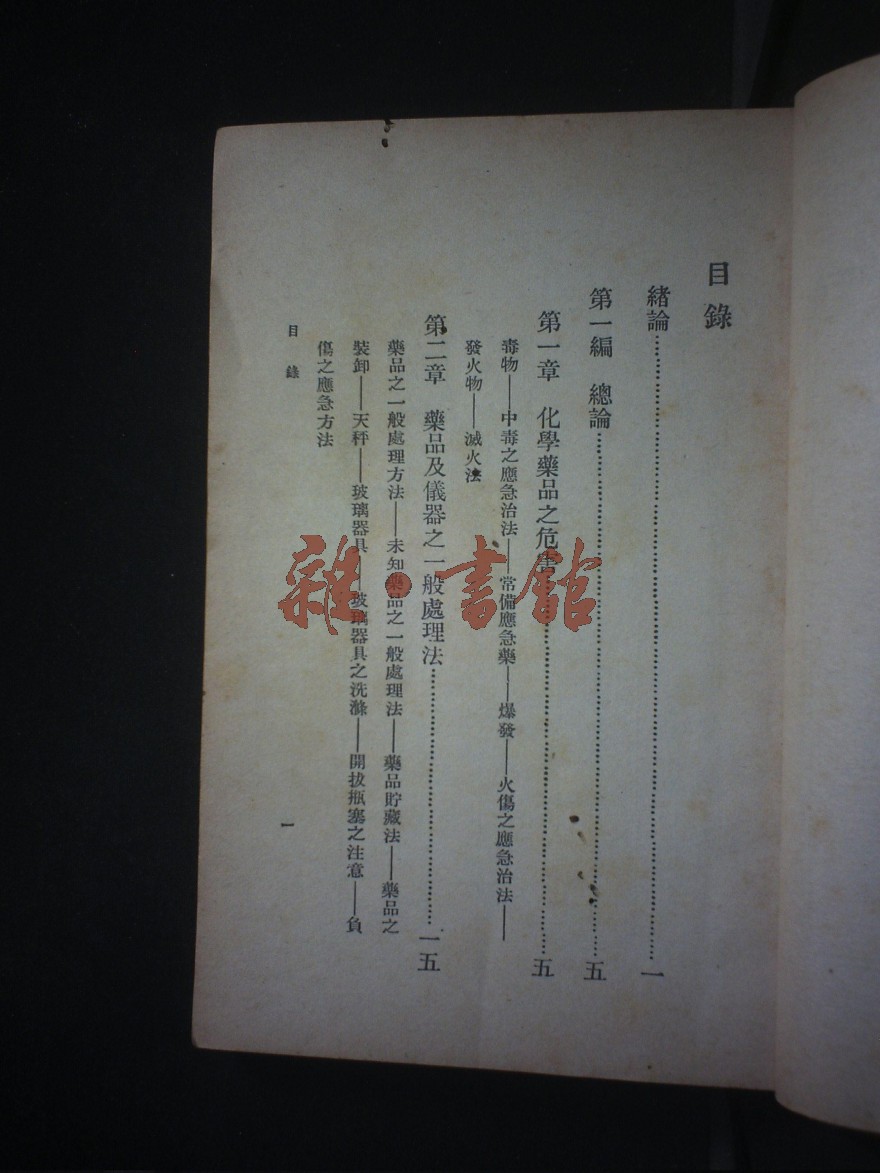 目錄
緒論……一
第一編 總論……五
第一章 化學藥品之危害……五
毒物——中毒之應急治法——常備應急藥——爆發——火傷之應急治法——
發火物——滅火法
第二章 藥品及儀器之一般處理法……一五
藥品之一般處理方法——未知藥品之一般處理法——藥品貯藏法——藥品之
裝卸——天秤——玻璃器具——玻璃器具之洗滌——開拔瓶塞之注意——負
傷之應急方法
目錄
一
雜·書館